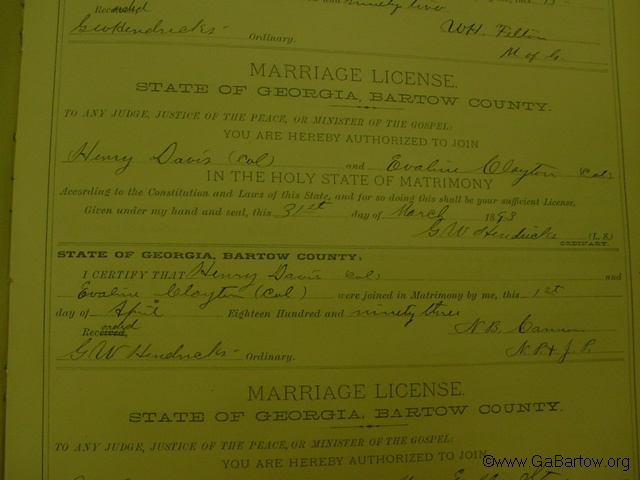 Recorded and ninety two
G W Hendricks - Ordinary. W.H. Felton
M of G.
MARRIAGE LICENSE.
STATE OF GEORGIA, BARTOW COUNTY.
TO ANY JUDGE, JUSTICE OF THE PEACE, OR MINISTER OF THE GOSPEL:
YOU ARE HEREBY AUTHORIZED TO JOIN
Henry Davis (Col) and Evaline Clayton (Col)
IN THE HOLY STATE OF MATRIMONY
According to the Constitution and Laws of this State, and for so doing this shall be your sufficient License.
Given under my hand and seal, this 31st day of March 1893
G W Hendricks (L. S.)
ORDINARY.
STATE OF GEORGIA, BARTOW COUNTY:
I CERTIFY THAT Henry Davis Col and
Evaline Clayton (Col) were joined in Matrimony by me, this 1st
day of April Eighteen Hundred and ninety three
Recorded N.B. Cannon
G W Hendricks - Ordinary. N.P. & J.P.
MARRIAGE LICENSE.
STATE OF GEORGIA, BARTOW COUNTY.
TO ANY JUDGE, JUSTICE OF THE PEACE, OR MINISTER OF THE GOSPEL:
YOU ARE HEREBY AUTHORIZED TO JOIN
©www.GaBartow.org